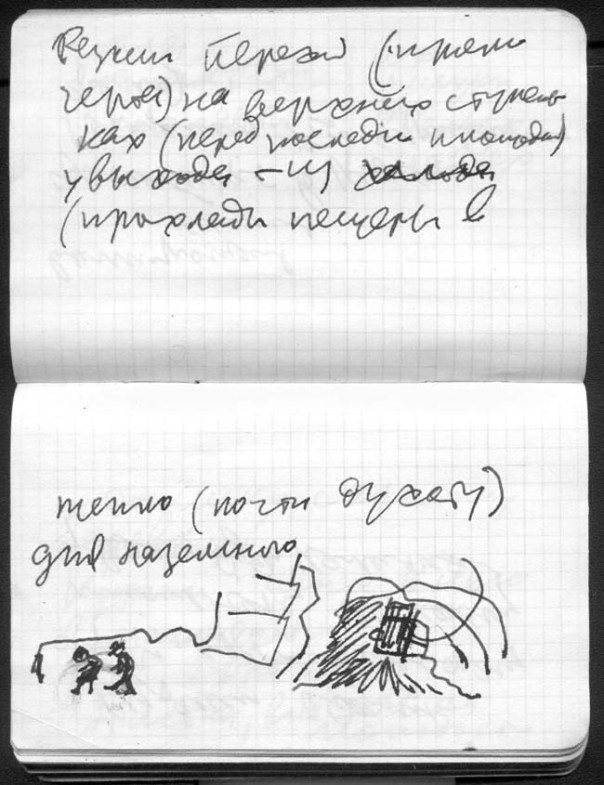 Резкий переход (прямо
черта) на верхних ступень
ках (перед последн площадк)
у выхода – из холода
(прохлады пещеры в
тепло (почти духоту)
дня наземного